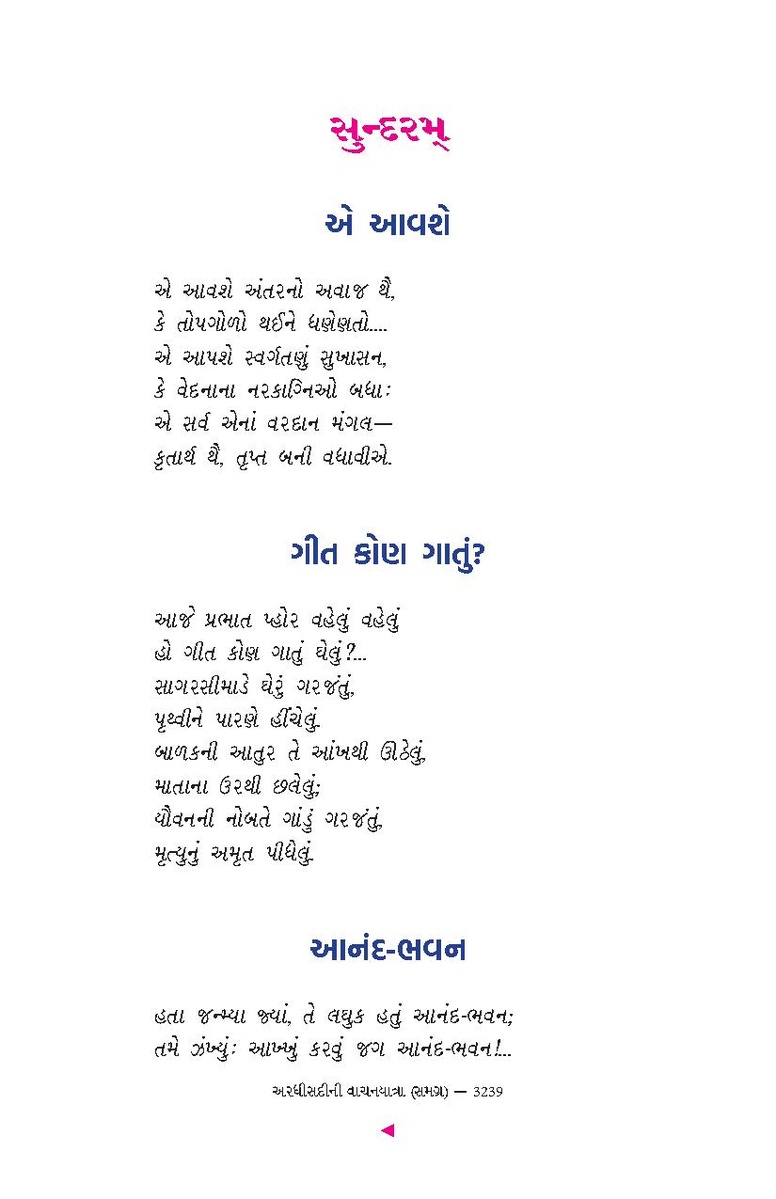 સુન્દરમ્
એ આવશે
એ આવશે અંતરનો અવાજ થૈ,
કે તોપગોળો થઈને ધણેણતો....
એ આપશે સ્વર્ગતણું સુખાસન,
કે વેદનાના નરકાગ્નિઓ બધાઃ
એ સર્વ એનાં વરદાન મંગલ—
કૃતાર્થ થૈ, તૃપ્ત બની વધાવીએ.
ગીત કોણ ગાતું?
આજે પ્રભાત પ્હોર વહેલું વહેલું
હો ગીત કોણ ગાતું ઘેલું?...
સાગરસીમાડે ઘેરું ગરજંતું,
પૃથ્વીને પારણે હીંચેલું.
બાળકની આતુર તે આંખથી ઊઠેલું,
માતાના ઉરથી છલેલું;
યૌવનની નોબતે ગાંડું ગરજંતું,
મૃત્યુનું અમૃત પીધેલું.
આનંદ-ભવન
હતા જન્મ્યા જ્યાં, તે લઘુક હતું આનંદ-ભવન;
તમે ઝંખ્યુંઃ આખ્ખું કરવું જગ આનંદ-ભવન!...
અરધીસદીની વાચનયાત્રા (સમગ્ર) — 3239